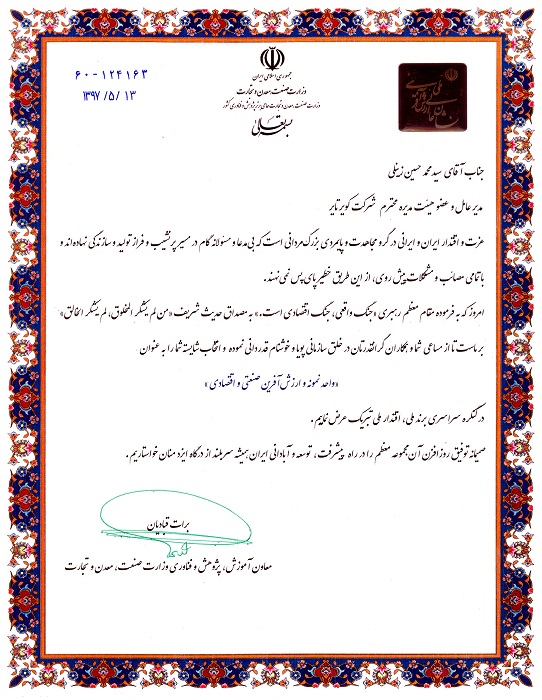 جمهوری اسلامی ایران
وزارت صنعت، معدن و تجارت
وزارت صنعت، معدن و تجارت حامی برتر پژوهش و فناوری کشور
بسمه تعالی
۶۰-۱۲۴۱۶۳
۱۳۹۷/۵/۱۳
جناب آقای سید محمد حسین زینلی
مدیر عامل و عضو هیئت مدیره محترم شرکت کویر تایر
عزت و اقتدار ایران و ایرانی در گرو مجاهدت و پایمردی بزرگ مردانی است که بی مدعا و مسئولانه گام در مسیر پر نشیب و فراز تولید و سازندگی نهاده اند و
با تمامی مصائب و مشکلات پیش روی، از این طریق خطیر پای پس نمی نهند.
امروز که به فرموده مقام معظم رهبری «جنگ واقعی، جنگ اقتصادی است.» به مصداق حدیث شریف «من لم یشکر المخلوق، لم یشکر الخالق»
بر ماست تا از مساعی شما و همکاران گرانقدرتان در خلق سازمانی پویا و خوشنام قدردانی نموده و انتخاب شایسته شما را به عنوان
«واحد نمونه و ارزش آفرین صنعتی و اقتصادی»
در کنگره سراسری برند ملی، اقتدار ملی تبریک عرض نماییم.
صمیمانه توفیق روز افزن آن مجموعه معظم را در راه پیشرفت، توسعه و آبادانی ایران همیشه سربلند از درگاه ایزد منان خواستاریم.
برات قبادیان
معاون آموزش، پژوهش و فناوری وزارت صنعت، معدن و تجارت